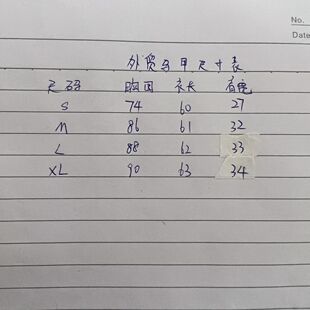 No.
Date
外贸马甲尺寸表
尺码 胸围 衣长 肩宽
S 74 60 27
M 86 61 32
L 88 62 33
XL 90 63 34